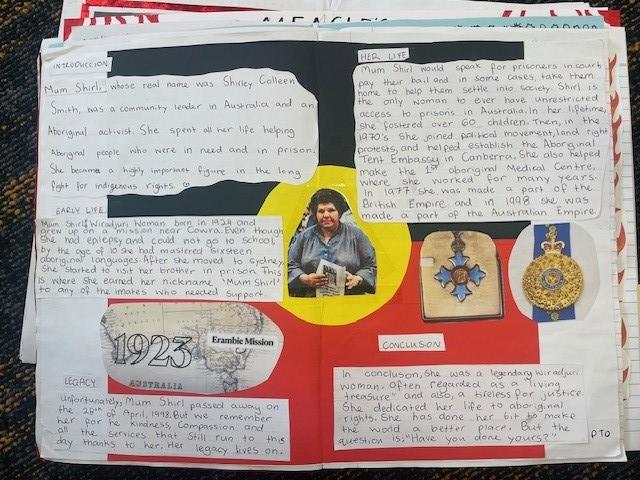 MEAGLE'S
INTRODUCTION
Mum Shirl, whose real name was Shirley Colleen
Smith, was a community leader in Australia and an
Aboriginal activist. She spent all her life helping
Aboriginal people who were in need and in prison.
She became a highly important figure in the long
fight for indigenous rights.
EARLY LIFE
Mum Shirl, Wiradjuri Woman born in 1924 and
grew up on a mission near Cowra. Even though
She had epilepsy and could not go to school,
by the age of 10 she had mastered Sixteen
aboriginal languages. After she moved to Sydney
She started to visit her brother in prison. This
is where She earned her nickname "Mum Shirl"
to any of the imates who needed Support.
1923
Erambie Mission
AUSTRALIA
LEGACY
Unfortunately, Mum Shirl passed away on
the 28th of April, 1998. But we remember
her for he kindness, Compassion and
all the services that still run to this
day thanks to her. Her legacy lives on.
HER LIFE
Mum Shirl would speak for prisoners in court
pay their bail and in some cases, take them
home to help them settle into society. Shirl is
the only woman to ever have unrestricted
access to prisons in Australia. In her lifetime,
she fostered over 60 children. Then, in the
1970's She joined political movement, land right
protests, and helped establish the Aboriginal
Tent Embassy in Canberra. She also helped
make the 1st aboriginal Medical Centre,
where she worked for many years.
In 1977 she was made a part of the
British Empire and in 1998 she was
made a part of the Australian Empire.
CONCLUSION
In conclusion, She was a legendary Wiradjuri
woman. Often regarded as a "living
treasure" and also, a tireless for justice.
She dedicated her life to aboriginal
rights. She has done her bit to make
the world a better place. But the
question is: "Have you done yours?"
PTO